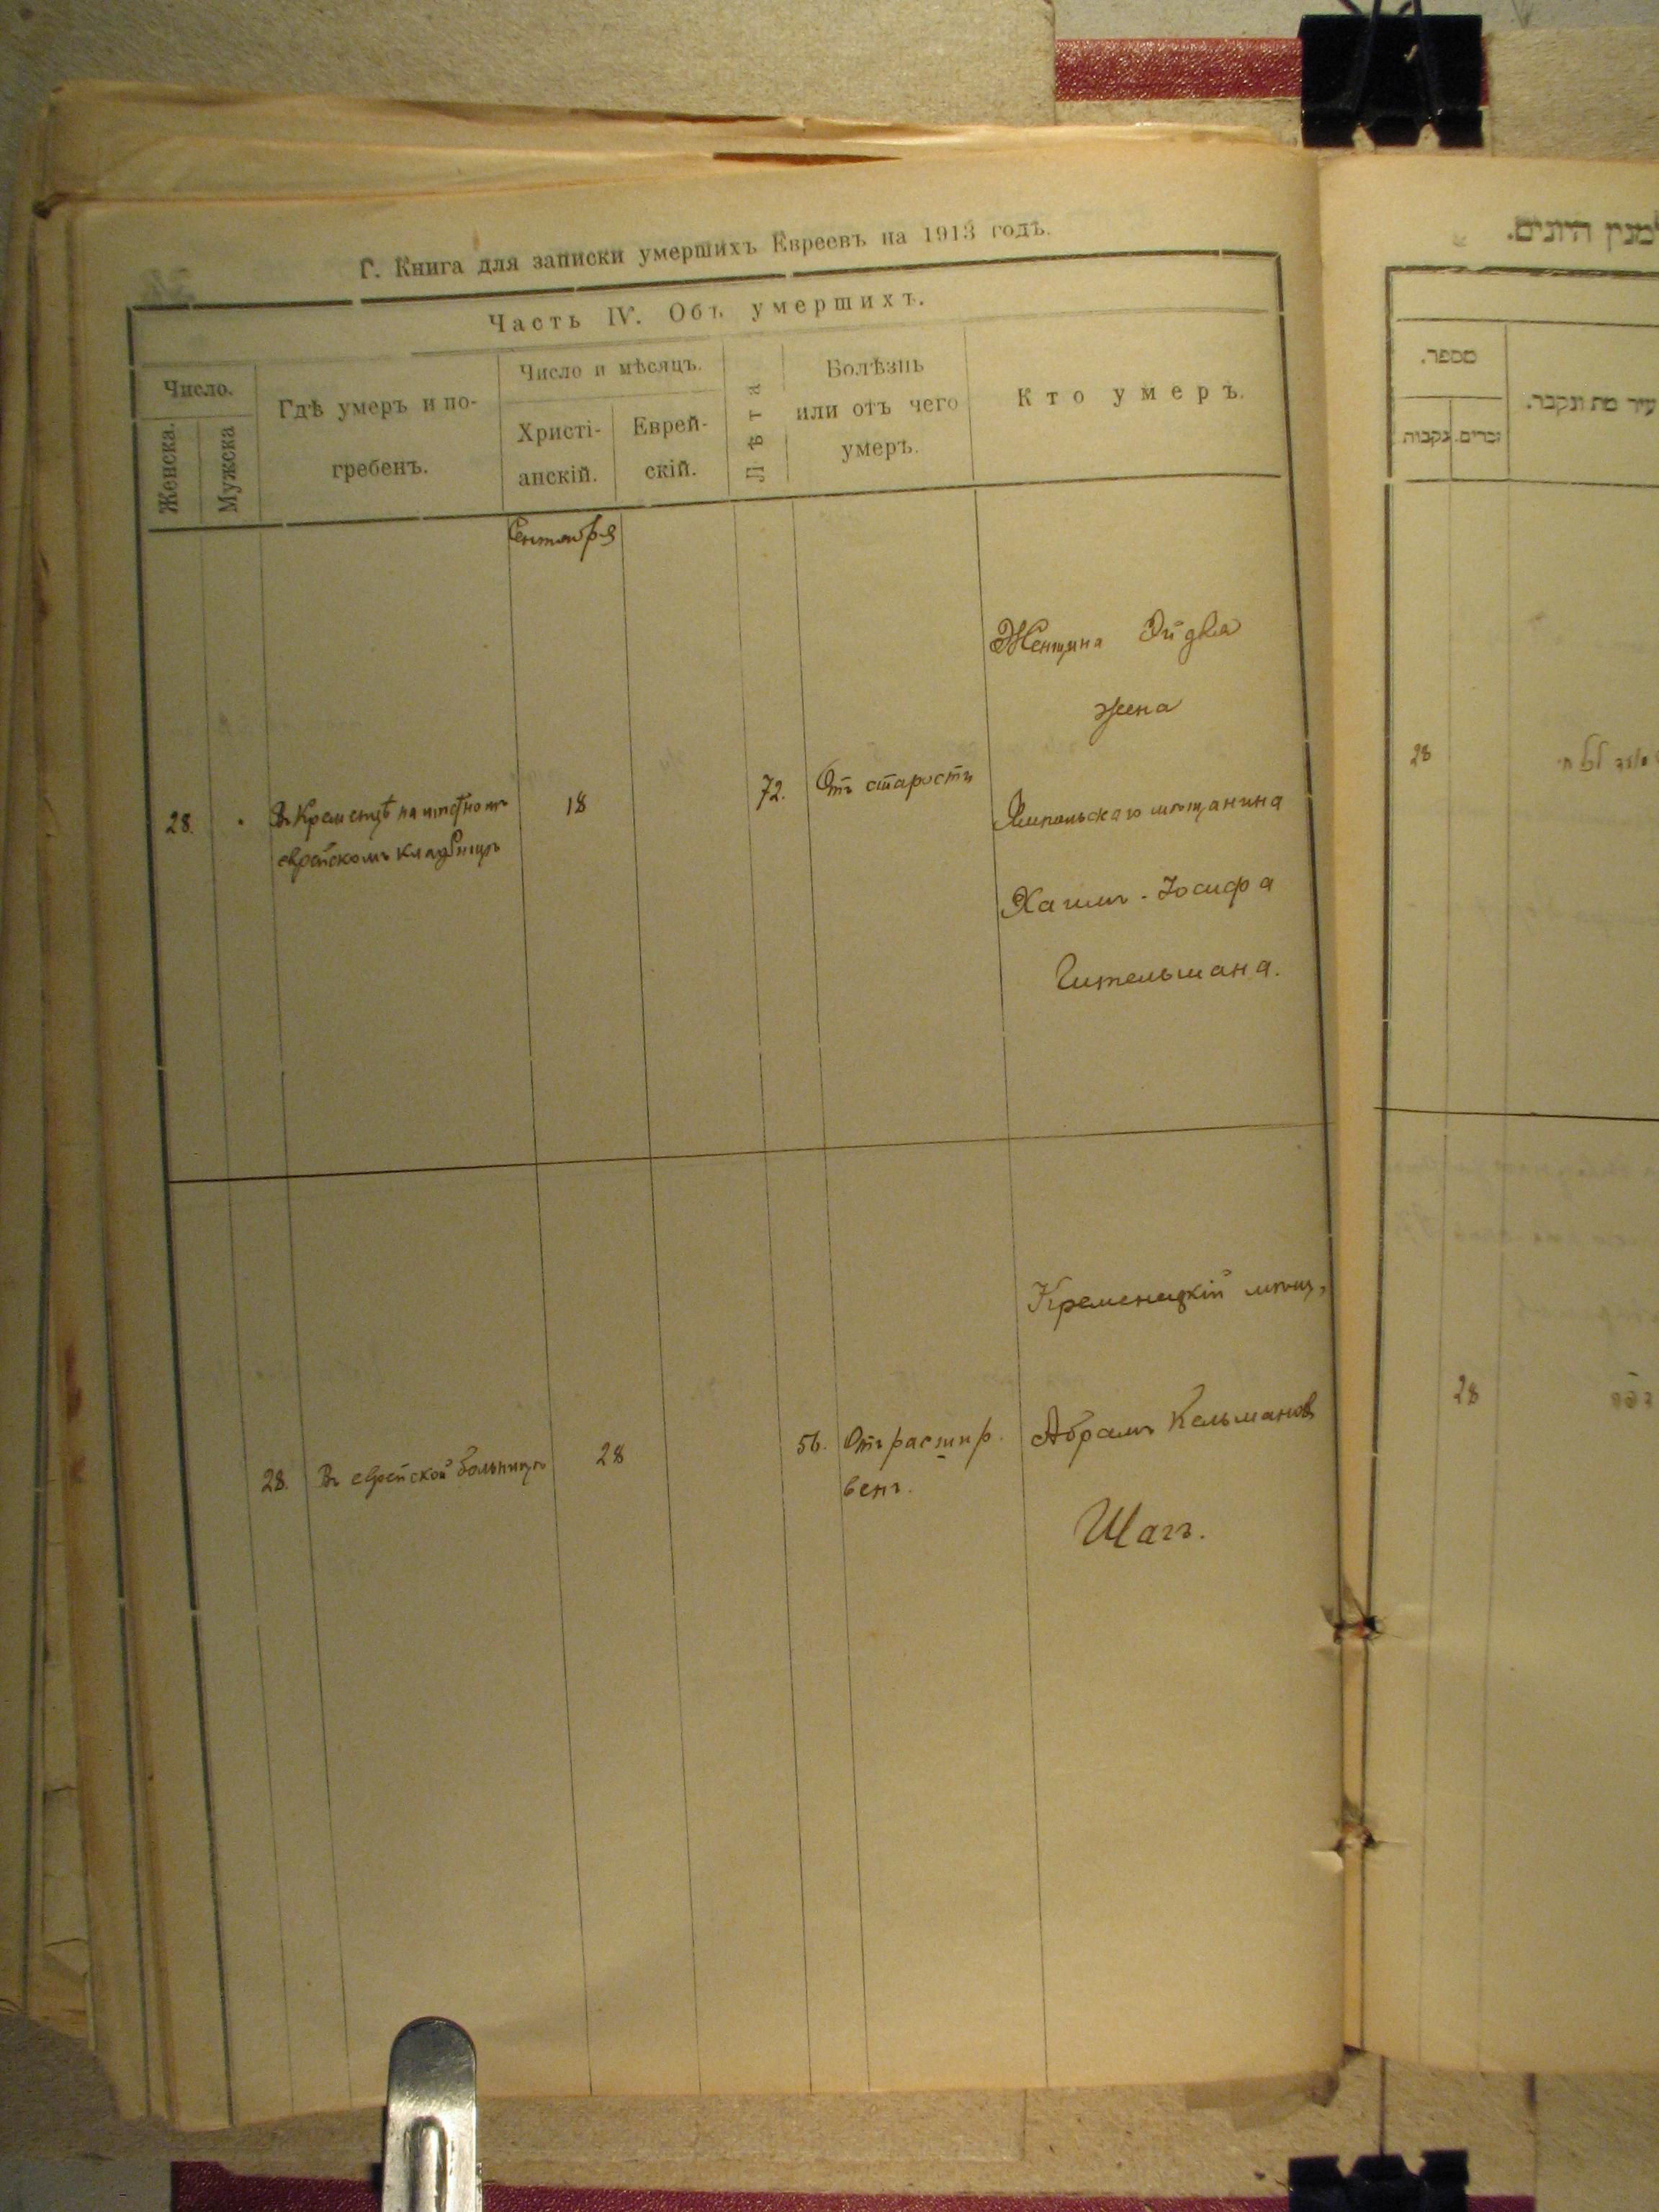 Г. Книга для записки умершихъ Евреевъ на 1913 годъ.
Часть IV. Объ умершихъ.
Число.
Женска.
Мужска
Гдѣ умеръ и по-
гребенъ.
Число и мѣсяцъ.
Христі-
анскій.
Еврей-
скій.
Лѣта
Болѣзнь
или отъ чего
умеръ.
Кто умеръ.
Сентября
28.
Въ Кременцѣ на мѣстномъ
еврейскомъ кладбищѣ
18
72.
Отъ старости
Женщина Эйдля
жена
Ямпольскаго мѣщанина
Хаимъ-Іосифа
Гительмана.
28.
Въ еврейской больницѣ
28
56.
Отъ расшир.
венъ.
Кременецкій мѣщ,
Абрамъ Кельмановъ
Шагъ.
למנין היונים.
מספר.
נקבות
זכרים.
עיר מת ונקבר.
28
28